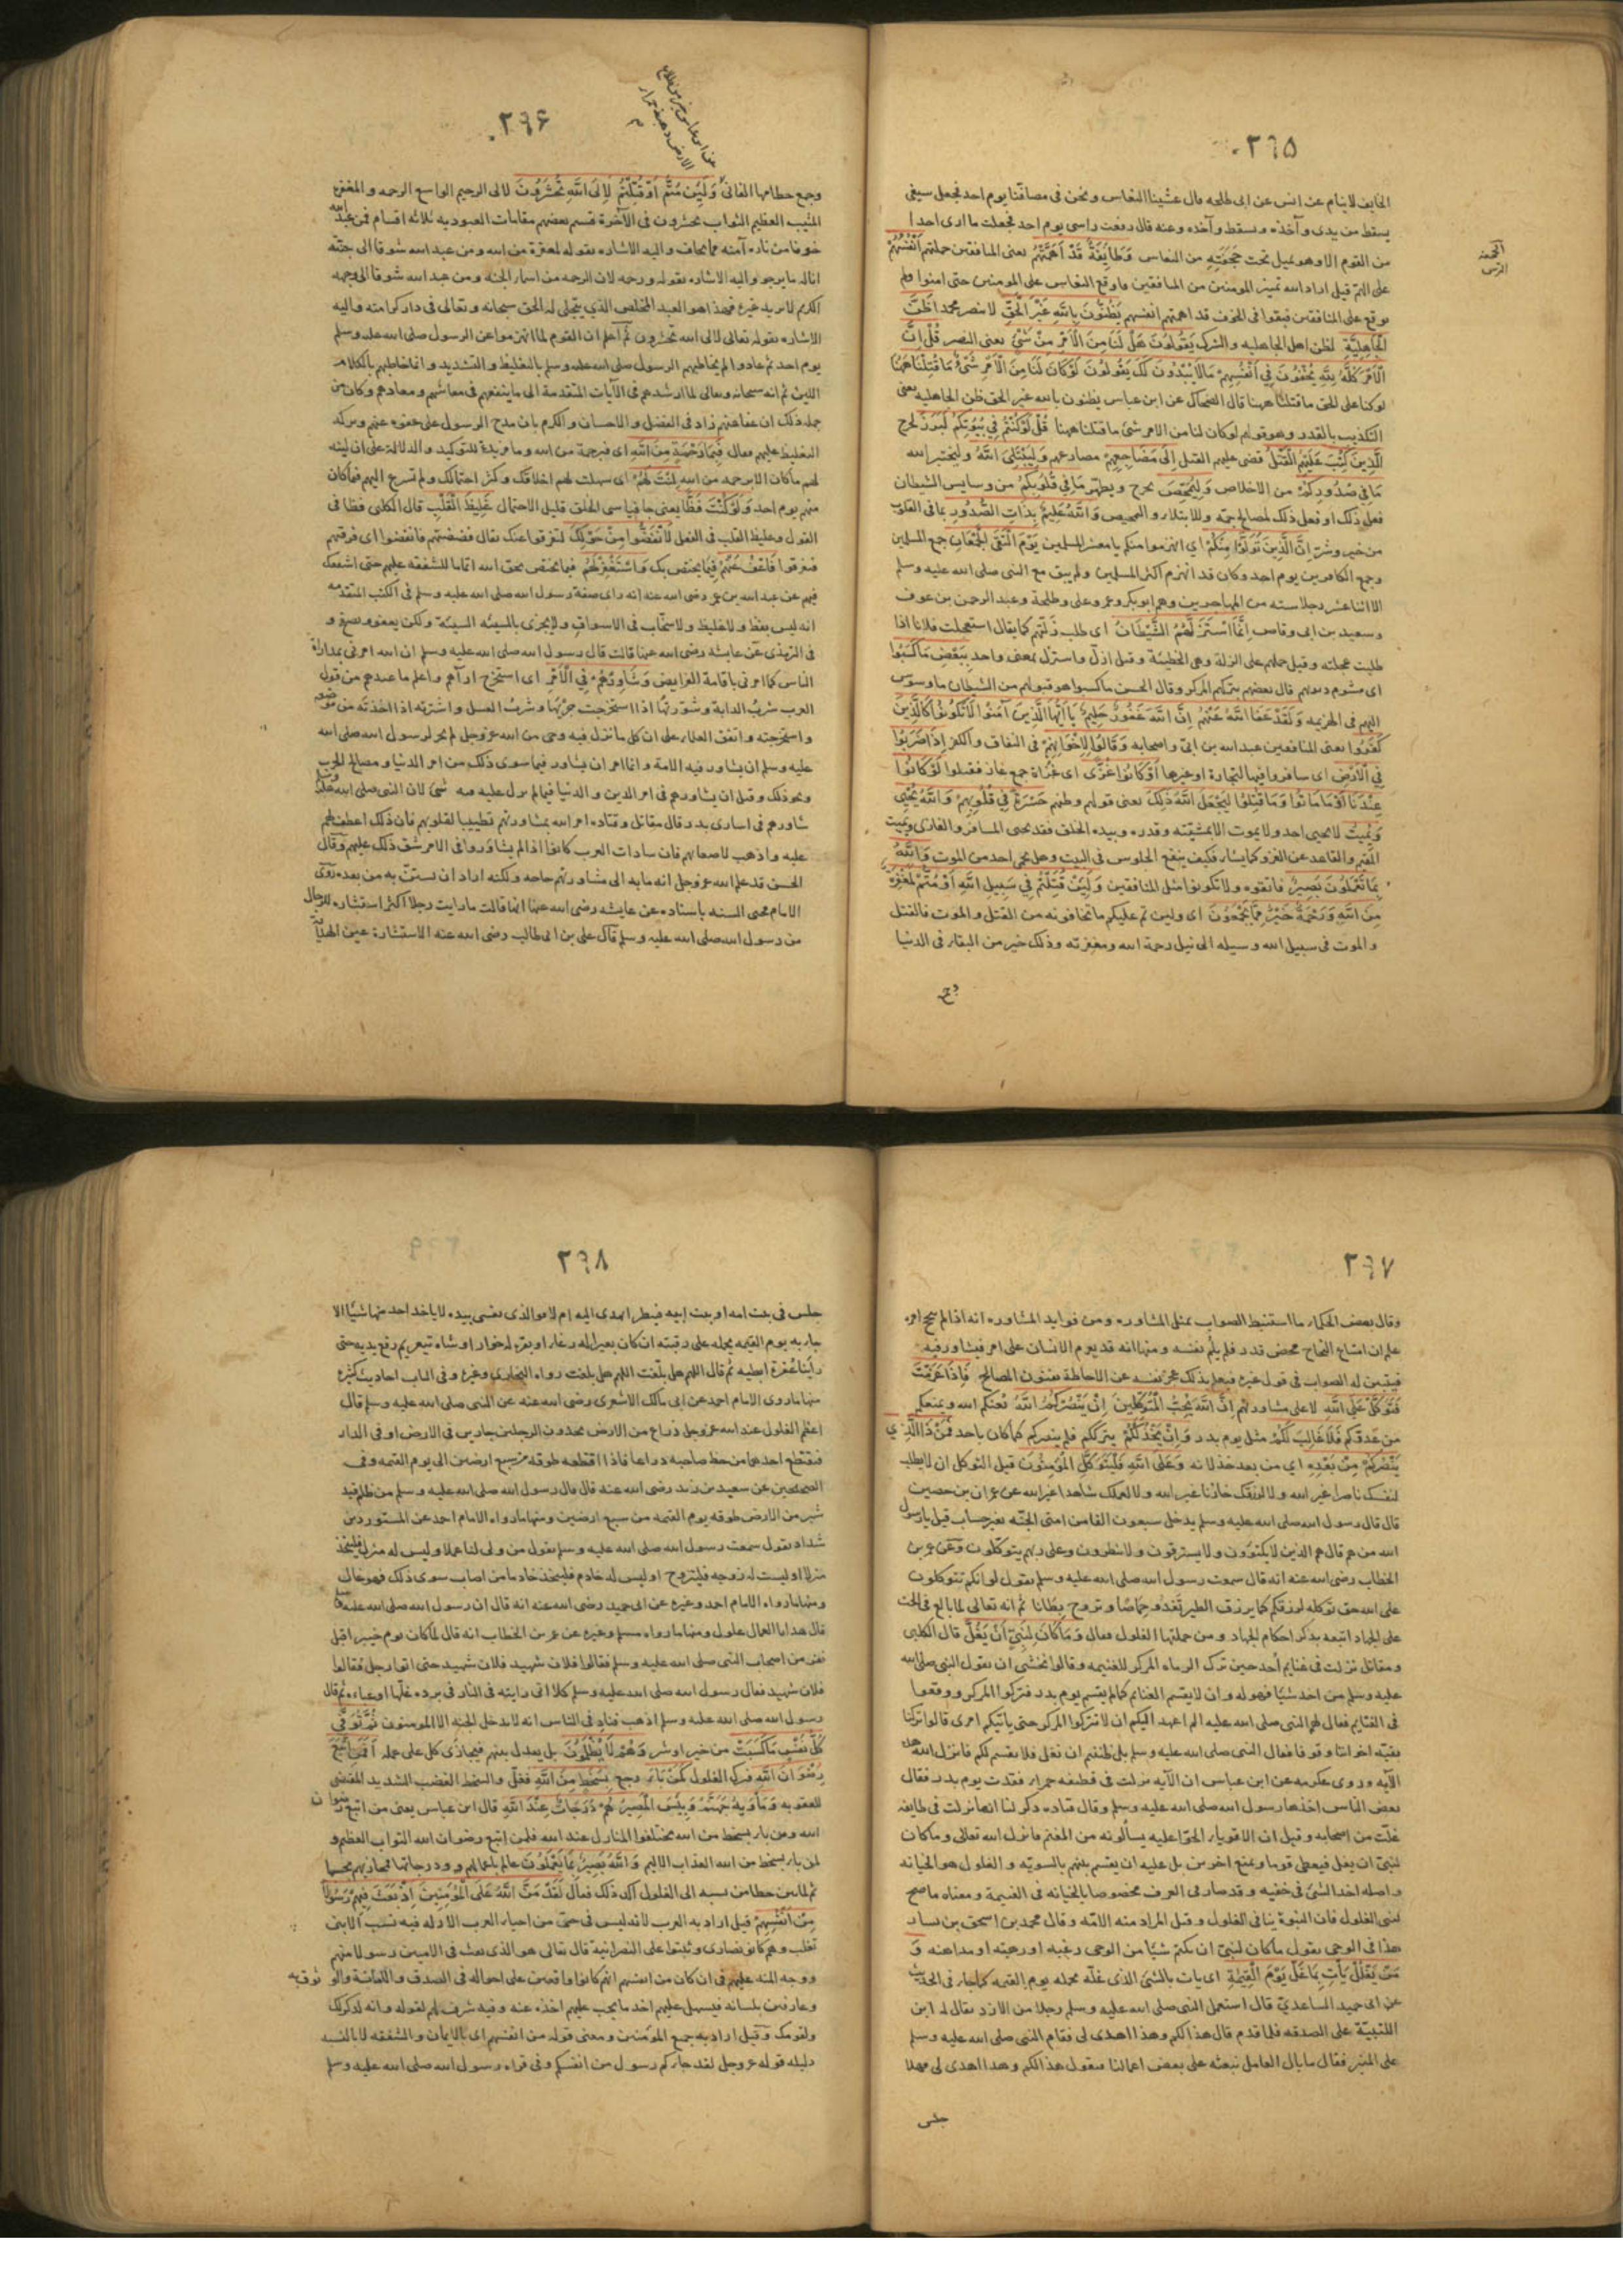 ٢٦٥
الخايف لا ينام عن انس عن ابى طلحه قال غشينا النعاس ونحن فى مصافنا يوم احد فجعل سيفى
يسقط من يدى وآخذه ويسقط وآخذه وعنه قال رفعت راسى يوم احد فجعلت ما ارى احدا
من القوم الا وهو يميل تحت حجفته من النعاس وَطَائِفَةٌ قَدْ أَهَمَّتْهُمْ يعنى المنافقين حملتهم أَنْفُسُهُمْ
الحجفة
الترس
على الهم قيل اراد الله تميز المومنين من المنافقين فاوقع النعاس على المومنين حتى امنوا ولم
يوقع على المنافقين فبقوا فى الخوف قد اهمتهم انفسهم يَظُنُّونَ بِاللَّهِ غَيْرَ الْحَقِّ لا ينصر محمدا ظَنَّ
الْجَاهِلِيَّةِ كظن اهل الجاهليه والشرك يَقُولُونَ هَلْ لَنَا مِنَ الْأَمْرِ مِنْ شَيْءٍ يعنى النصر قُلْ إِنَّ
الْأَمْرَ كُلَّهُ لِلَّهِ يُخْفُونَ فِي أَنْفُسِهِمْ مَا لَا يُبْدُونَ لَكَ يَقُولُونَ لَوْ كَانَ لَنَا مِنَ الْأَمْرِ شَيْءٌ مَا قُتِلْنَا هَهُنَا
لو كنا على الحق ما قتلنا ههنا قال الضحاك عن ابن عباس يظنون بالله غير الحق ظن الجاهليه يعنى
التكذيب بالقدر وهو قولهم لو كان لنا من الامر شئ ما قتلنا ههنا قُلْ لَوْ كُنْتُمْ فِي بُيُوتِكُمْ لَبَرَزَ لخرج
الَّذِينَ كُتِبَ عَلَيْهِمُ الْقَتْلُ قضى عليهم القتل إِلَى مَضَاجِعِهِمْ مصارعهم وَلِيَبْتَلِيَ اللَّهُ وليختبر الله
مَا فِي صُدُورِكُمْ من الاخلاص وَلِيُمَحِّصَ يخرج ويطهر مَا فِي قُلُوبِكُمْ من وساوس الشيطان
فعل ذلك او فعل ذلك لمصالح جمة وللابتلاء والتمحيص وَاللَّهُ عَلِيمٌ بِذَاتِ الصُّدُورِ بما فى القلوب
من خير وشر إِنَّ الَّذِينَ تَوَلَّوْا مِنْكُمْ اي انهزموا منكم يا معشر المسلمين يَوْمَ الْتَقَى الْجَمْعَانِ جمع المسلمين
وجمع الكافرين يوم احد وكان قد انهزم اكثر المسلمين ولم يبق مع النبى صلى الله عليه وسلم
الا اثنا عشر رجلا سته من المهاجرين وهم ابو بكر وعمر وعلى وطلحة وعبد الرحمن بن عوف
وسعيد بن ابى وقاص إِنَّمَا اسْتَزَلَّهُمُ الشَّيْطَانُ اى طلب زلتهم كما يقال استعجلت فلانا اذا
طلبت عجلته وقيل حملهم على الزلة وهى الخطيئة وقيل ازل واستزل بمعنى واحد بِبَعْضِ مَا كَسَبُوا
اى بشوم ذنوبهم قال بعضهم بتركهم المركز وقال الحسن ما كسبوا هو قبولهم من الشيطان ما وسوس
اليهم فى الهزيمه وَلَقَدْ عَفَا اللَّهُ عَنْهُمْ إِنَّ اللَّهَ غَفُورٌ حَلِيمٌ يَا أَيُّهَا الَّذِينَ آمَنُوا لَا تَكُونُوا كَالَّذِينَ
كَفَرُوا يعنى المنافقين عبد الله بن ابى واصحابه وَقَالُوا لِإِخْوَانِهِمْ فى النفاق والكفر إِذَا ضَرَبُوا
فِي الْأَرْضِ اى سافروا فيها لتجارة او غيرها أَوْ كَانُوا غُزًّى اى غزاة جمع غاز فقتلوا لَوْ كَانُوا
عِنْدَنَا مَا مَاتُوا وَمَا قُتِلُوا لِيَجْعَلَ اللَّهُ ذَلِكَ يعنى قولهم وظنهم حَسْرَةً فِي قُلُوبِهِمْ وَاللَّهُ يُحْيِي
وَيُمِيتُ لا يحيى احد ولا يموت الا بمشيئته وقدره وبيده الخلق فقد يحيى المسافر والغازى ويميت
المقيم والقاعد عن الغزو كما يشاء فكيف ينفع الجلوس فى البيت وهل يحمى احد من الموت وَاللَّهُ
بِمَا تَعْمَلُونَ بَصِيرٌ فاتقوه ولا تكونوا مثل المنافقين وَلَئِنْ قُتِلْتُمْ فِي سَبِيلِ اللَّهِ أَوْ مُتُّمْ لَمَغْفِرَةٌ
مِنَ اللَّهِ وَرَحْمَةٌ خَيْرٌ مِمَّا يَجْمَعُونَ اى ولئن تم عليكم ما تخافونه من القتل والموت فالقتل
والموت فى سبيل الله وسيله الى نيل رحمة الله ومغفرته وذلك خير من البقاء فى الدنيا
وجمع
٢٦۶
وجمع حطامها الفانى وَلَئِنْ مُتُّمْ أَوْ قُتِلْتُمْ لَإِلَى اللَّهِ تُحْشَرُونَ لالى الرحيم الواسع الرحمه والمغفرة
المثيب العظيم الثواب تحشرون فى الآخرة قسم بعضهم مقامات العبوديه ثلاثه اقسام فمن عبد الله
خوفا من ناره آمنه مما يخاف واليه الاشاره بقوله لمغفرة من الله ومن عبد الله شوقا الى جنته
اناله ما يرجو واليه الاشاره بقوله ورحمه لان الرحمه من اسماء الجنه ومن عبد الله شوقا الى وجهه
الكريم لا يريد غيره فهذا هو العبد المخلص الذي يتجلى له الحق سبحانه وتعالى فى دار كرامته واليه
الاشاره بقوله تعالى لالى الله تحشرون ثم اعلم ان القوم لما انهزموا عن الرسول صلى الله عليه وسلم
يوم احد ثم عادوا لم يخاطبهم الرسول صلى الله عليه وسلم بالتغليظ والتشديد وانما خاطبهم بالكلام
اللين ثم انه سبحانه وتعالى لما ارشدهم فى الآيات المتقدمة الى ما ينفعهم فى معاشهم ومعادهم وكان من
جملة ذلك ان عفا عنهم زاد فى الفضل والاحسان والكرم بان مدح الرسول على عفوه عنهم وتركه
التغليظ عليهم فقال فَبِمَا رَحْمَةٍ مِنَ اللَّهِ اى فبرحمة من الله وما مزيدة للتوكيد والدلالة على ان لينه
لهم ما كان الا برحمه من الله لِنْتَ لَهُمْ اى سهلت لهم اخلاقك وكثر احتمالك ولم تسرع اليهم فيما كان
منهم يوم احد وَلَوْ كُنْتَ فَظًّا يعنى جافيا سى الخلق قليل الاحتمال غَلِيظَ الْقَلْبِ قال الكلبى فظا فى
القول وغليظ القلب فى الفعل لَانْفَضُّوا مِنْ حَوْلِكَ لتفرقوا عنك يقال فضضتهم فانفضوا اى فرقتهم
فتفرقوا فَاعْفُ عَنْهُمْ فيما يختص بك وَاسْتَغْفِرْ لَهُمْ فيما يختص بحق الله اتماما للشفقه عليهم حتى اشفعك
فيهم عن عبد الله بن عمر رضى الله عنه انه راى صفة رسول الله صلى الله عليه وسلم فى الكتب المتقدمه
انه ليس بفظ ولا غليظ ولا سخاب فى الاسواق ولا يجزى بالسيئه السيئة ولكن يعفو ويصفح و
فى الترمذى عن عايشه رضى الله عنها قالت قال رسول الله صلى الله عليه وسلم ان الله امرنى بمداراة
الناس كما امرنى باقامة الفرايض وَشَاوِرْهُمْ فِي الْأَمْرِ اى استخرج آراهم واعلم ما عندهم من قول
العرب شرت الدابة وشورتها اذا استخرجت جريها وشرت العسل واشترته اذا اخذته من موضعه
واستخرجته واتفق العلماء على ان كل ما نزل فيه وحى من الله عز وجل لم يجز لرسول الله صلى الله
عليه وسلم ان يشاور فيه الامة وانما امر ان يشاور فيما سوى ذلك من امر الدنيا ومصالح الحرب
ونحو ذلك وقيل ان يشاورهم فى امر الدين والدنيا فيما لم ينزل عليه فيه شئ لان النبى صلى الله عليه وسلم
شاورهم فى اسارى بدر وقال مقاتل وقتاده امر الله بمشاورتهم تطييبا لقلوبهم فان ذلك اعطف لهم
عليه واذهب لاضغانهم فان سادات العرب كانوا اذا لم يشاوروا فى الامر شق ذلك عليهم وقال
الحسن قد علم الله عز وجل انه ما به الى مشاورتهم حاجه ولكنه اراد ان يستن به من بعده روى
الامام محيى السنه باسناده عن عايشه رضى الله عنها انها قالت ما رايت رجلا اكثر استشاره للرجال
من رسول الله صلى الله عليه وسلم قال على بن ابى طالب رضى الله عنه الاستشارة عين الهداية
٢٦٧
وقال بعض الحكماء ما استنبط الصواب بمثل المشاوره ومن فوايد المشاوره انه اذا لم ينجح امره
علم ان امتناع النجاح محض قدر فلم يلم نفسه ومنها انه قد يعزم الانسان على امر فيشاور فيه
فيتبين له الصواب فى قول غيره فيعلم بذلك عجز نفسه عن الاحاطة بفنون المصالح فَإِذَا عَزَمْتَ
فَتَوَكَّلْ عَلَى اللَّهِ لا على مشاورتهم إِنَّ اللَّهَ يُحِبُّ الْمُتَوَكِّلِينَ إِنْ يَنْصُرْكُمُ اللَّهُ يعنكم الله ويمنعكم
من عدوكم فَلَا غَالِبَ لَكُمْ مثل يوم بدر وَإِنْ يَخْذُلْكُمْ يترككم فلم ينصركم كما كان باحد فَمَنْ ذَا الَّذِي
يَنْصُرُكُمْ مِنْ بَعْدِهِ اي من بعد خذلانه وَعَلَى اللَّهِ فَلْيَتَوَكَّلِ الْمُؤْمِنُونَ قيل التوكل ان لا يطلب
لنفسك ناصرا غير الله ولا لرزقك خازنا غير الله ولا لعملك شاهدا غير الله عن عمران بن حصين
قال قال رسول الله صلى الله عليه وسلم يدخل سبعون الفا من امتى الجنه بغير حساب قيل يا رسول
الله من هم قال هم الذين لا يكتوون ولا يسترقون ولا يتطيرون وعلى ربهم يتوكلون وعن عمر بن
الخطاب رضى الله عنه انه قال سمعت رسول الله صلى الله عليه وسلم يقول لو انكم تتوكلون
على الله حق توكله لرزقكم كما يرزق الطير تغدو خماصا وتروح بطانا ثم انه تعالى لما بالغ فى الحث
على الجهاد اتبعه بذكر احكام الجهاد ومن جملتها الغلول فقال وَمَا كَانَ لِنَبِيٍّ أَنْ يَغُلَّ قال الكلبى
ومقاتل نزلت فى غنايم أحد حين ترك الرماه المركز للغنيمه وقالوا نخشى ان يقول النبى صلى الله
عليه وسلم من اخذ شيئا فهو له وان لا يقسم الغنائم كما لم يقسم يوم بدر فتركوا المركز ووقعوا
فى الغنايم فقال لهم النبى صلى الله عليه الم اعهد اليكم ان لا تتركوا المركز حتى ياتيكم امرى قالوا تركنا
بقيه اخواننا وقوفا فقال النبى صلى الله عليه وسلم بل ظننتم ان نغل فلا نقسم لكم فانزل الله هذه
الآيه وروى عكرمه عن ابن عباس ان الآيه نزلت فى قطيفه حمراء فقدت يوم بدر فقال
بعض الناس اخذها رسول الله صلى الله عليه وسلم وقال قتاده ذكر لنا انها نزلت فى طايفه
غلت من اصحابه وقيل ان الاقوياء الحوا عليه يسألونه من المغنم فانزل الله تعالى وما كان
لنبى ان يغل فيعطى قوما ويمنع اخرين بل عليه ان يقسم بينهم بالسويه والغلول هو الخيانه
واصله اخذ الشئ فى خفيه وقد صار فى العرف مخصوصا بالخيانه فى الغنيمة ومعناه ما صح
لنبى الغلول فان النبوة ينافى الغلول وقيل المراد منه الامه وقال محمد بن اسحق بن يسار
هذا فى الوحى يقول ما كان لنبى ان يكتم شيئا من الوحى رغبه او رهبة او مداهنه وَ
مَنْ يَغْلُلْ يَأْتِ بِمَا غَلَّ يَوْمَ الْقِيَامَةِ اى يات بالشئ الذى غله يحمله يوم القيمه كما جاء فى الحديث
عن ابى حميد الساعدى قال استعمل النبى صلى الله عليه وسلم رجلا من الازد يقال له ابن
اللتبية على الصدقه فلما قدم قال هذا لكم وهذا اهدى لى فقام النبى صلى الله عليه وسلم
على المنبر فقال ما بال العامل نبعثه على بعض اعمالنا فيقول هذا لكم وهذا اهدى لى فهلا
جلس
٢٦٨
جلس فى بيت امه او بيت ابيه فينظر ايهدى اليه ام لا والذى نفسى بيده لا ياخذ احد منها شيئا الا
جاء به يوم القيمه يحمله على رقبته ان كان بعيرا له رغاء او بقره لها خوار او شاة تيعر ثم رفع يديه حتى
راينا عفرة ابطيه ثم قال اللهم هل بلغت اللهم هل بلغت رواه البخارى وغيره وفى الباب احاديث كثيرة
منها ما روى الامام احمد عن ابى مالك الاشعرى رضى الله عنه عن النبى صلى الله عليه وسلم قال
اعظم الغلول عند الله عز وجل ذراع من الارض تجدون الرجلين جارين فى الارض او فى الدار
فيقتطع احدهما من حظ صاحبه ذراعا فاذا اقتطعه طوقه من سبع ارضين الى يوم القيمه وفى
الصحيحين عن سعيد بن زيد رضى الله عنه قال قال رسول الله صلى الله عليه وسلم من ظلم قيد
شبر من الارض طوقه يوم القيمه من سبع ارضين ومنها ما رواه الامام احمد عن المستورد بن
شداد يقول سمعت رسول الله صلى الله عليه وسلم يقول من ولى لنا عملا وليس له منزل فليتخذ
منزلا او ليست له زوجه فليتزوج او ليس له خادم فليتخذ خادما من اصاب سوى ذلك فهو غال
ومنها ما رواه الامام احمد وغيره عن ابى حميد رضى الله عنه انه قال ان رسول الله صلى الله عليه وسلم
قال هدايا العمال غلول ومنها ما رواه مسلم وغيره عن عمر بن الخطاب انه قال لما كان يوم خيبر اقبل
نفر من اصحاب النبى صلى الله عليه وسلم فقالوا فلان شهيد فلان شهيد حتى اتوا رجل فقالوا
فلان شهيد فقال رسول الله صلى الله عليه وسلم كلا انى رايته فى النار فى برده غلها او عباءه ثم قال
رسول الله صلى الله عليه وسلم اذهب فناد فى الناس انه لا يدخل الجنه الا المومنون ثُمَّ تُوَفَّى
كُلُّ نَفْسٍ مَا كَسَبَتْ من خير او شر وَهُمْ لَا يُظْلَمُونَ بل يعدل بينهم فيجازى كل على عمله أَفَمَنِ اتَّبَعَ
رِضْوَانَ اللَّهِ فترك الغلول كَمَنْ بَاءَ رجع بِسَخَطٍ مِنَ اللَّهِ فغل والسخط الغضب الشديد المقتضى
للعقوبه وَمَأْوَاهُ جَهَنَّمُ وَبِئْسَ الْمَصِيرُ هُمْ دَرَجَاتٌ عِنْدَ اللَّهِ قال ابن عباس يعنى من اتبع رضوان
الله ومن باء بسخط من الله مختلفوا المنازل عند الله فلمن اتبع رضوان الله الثواب العظيم و
لمن باء بسخط من الله العذاب الاليم وَاللَّهُ بَصِيرٌ بِمَا يَعْمَلُونَ عالم باعمالهم ودرجاتها فيجازيهم بحسبها
ثم لما بين خطا من نسبه الى الغلول اكد ذلك فقال لَقَدْ مَنَّ اللَّهُ عَلَى الْمُؤْمِنِينَ إِذْ بَعَثَ فِيهِمْ رَسُولًا
مِنْ أَنْفُسِهِمْ قيل اراد به العرب لانه ليس فى حى من احياء العرب الا وله فيه نسب الا بنى
تغلب وهم كانوا نصارى وثبتوا على النصرانية قال تعالى هو الذى بعث فى الاميين رسولا منهم
ووجه المنه عليهم فى ان كان من انفسهم انهم كانوا واقفين على احواله فى الصدق والامانة والوثوق به
وعارفين بلسانه فيسهل عليهم اخذ ما يجب عليهم اخذه عنه وفيه شرف لهم لقوله وانه لذكر لك
ولقومك وقيل اراد به جميع المؤمنين ومعنى قوله من انفسهم اى بالايمان والشفقه لا بالنسب
دليله قوله عز وجل لقد جاءكم رسول من انفسكم وفى قراه رسول الله صلى الله عليه وسلم